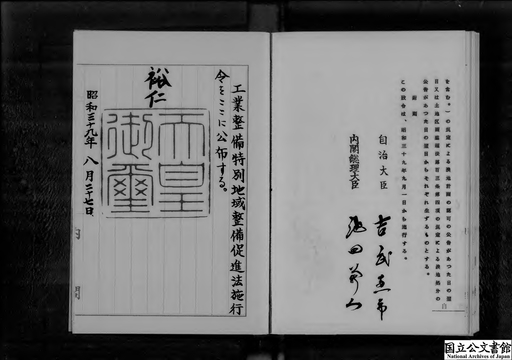 工業整備特別地域整備促進法施行
令をここに公布する。
裕仁
天皇
御璽
昭和三十九年八月二十七日
附則
この政令は、昭和三十九年九月一日から施行する。
自治大臣
吉武恵市
内閣総理大臣
池田勇人
国立公文書館
National Archives of Japan